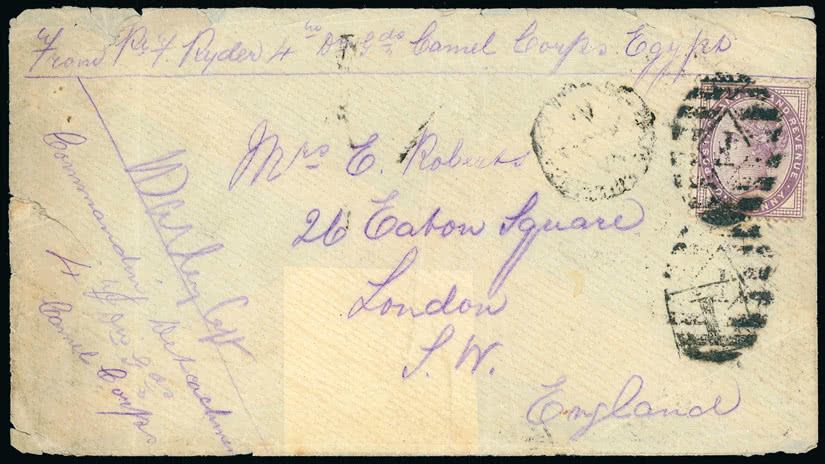 From Pr F Ryder 4th Dr Gds Camel Corps Egypt
Mrs E. Roberts
26 Eaton Square
London
S.W.
England
Darley Capt
Commanding Detachment
4 Dr Gds
Camel Corps
POSTAGE AND REVENUE
ONE PENNY